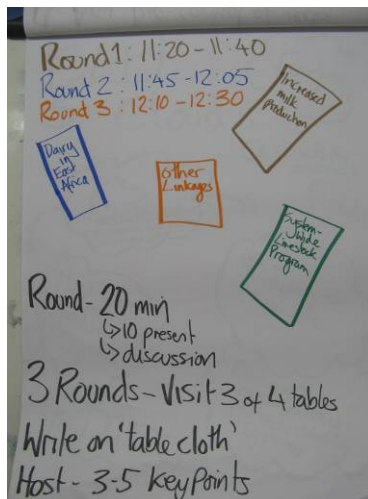 Round 1: 11:20 - 11:40
Round 2: 11:45 - 12:05
Round 3: 12:10 - 12:30
Increased
milk
production
Dairy
in
East
Africa
Other
Linkages
System-
Wide
Livestock
Program
Round - 20 min
↳10 present
↳discussion
3 Rounds - Visit 3 of 4 tables
Write on 'table cloth'
Host - 3-5 key points